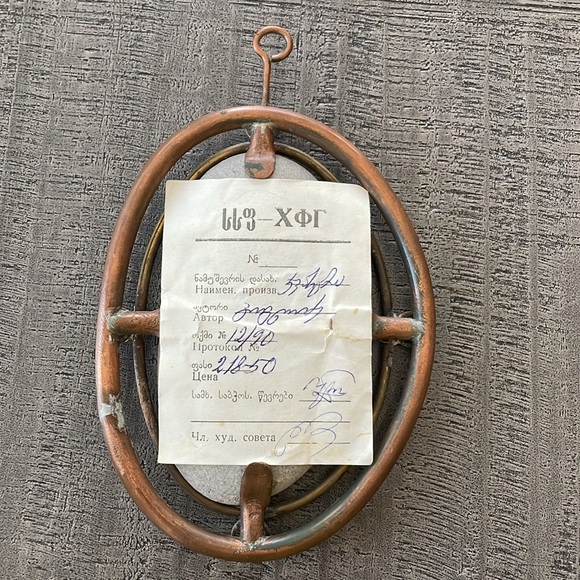 სსფ—ХФГ
№
ნამუშევრის დასახ.
Наимен. произв.
ავტორი
Автор
ოქმი № 12/90
Протокол №
ფასი 218-50
Цена
სამხ. საბჭოს. წევრები
Чл. худ. совета